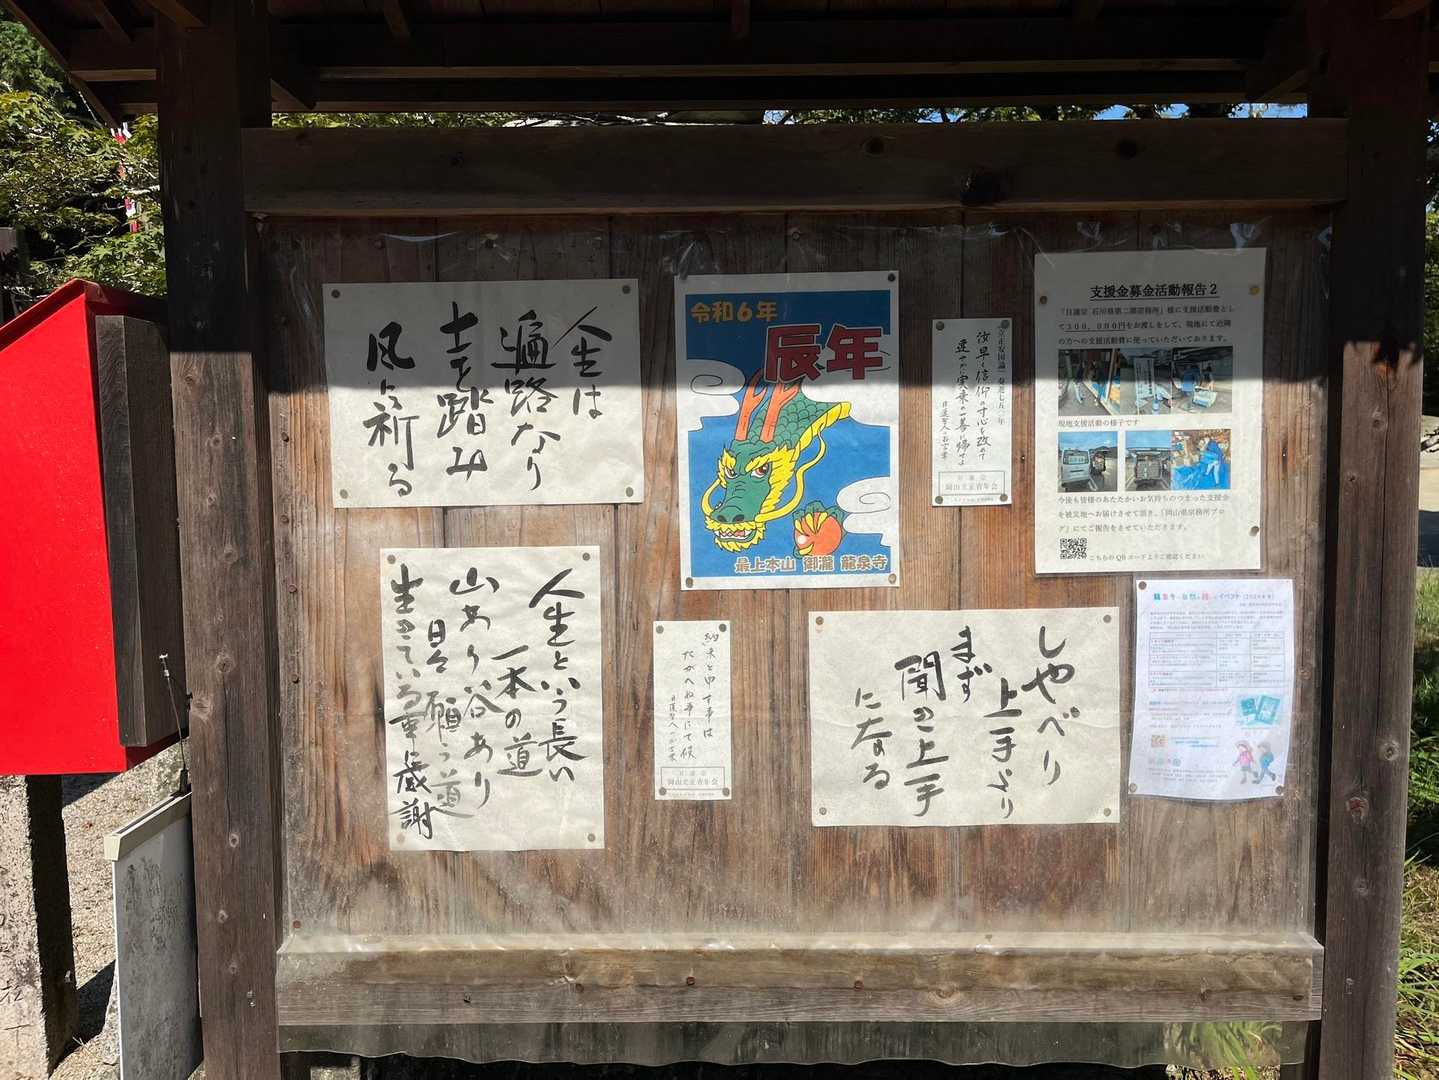 人生は
遍路なり
土を踏み
風に祈る
令和6年
辰年
最上本山 御瀧 龍泉寺
立正安国論 奏進七五〇年
汝早く信仰の寸心を改めて
速やかに実乗の一善に帰せよ
日蓮聖人のお言葉
日蓮宗
岡山立正青年会
支援金募金活動報告2
「日蓮宗 石川県第二部宗務所」様に支援活動費とし
て300,000円をお渡しをして、現地にて近隣
の方への支援活動費に使っていただいております。
現地支援活動の様子です
今後も皆様のあたたかいお気持ちのつまった支援金
を被災地へお届けさせて頂き、「岡山県宗務所ブロ
グ」にてご報告をさせていただきます。
こちらのQRコードよりご確認ください
人生という長い
一本の道
山あり谷あり
日々願う道
生きている事に感謝
納米と申す事は
たがへぬ事にて候
日蓮聖人のお言葉
日蓮宗
岡山立正青年会
しゃべり
上手より
まず
聞き上手
になる